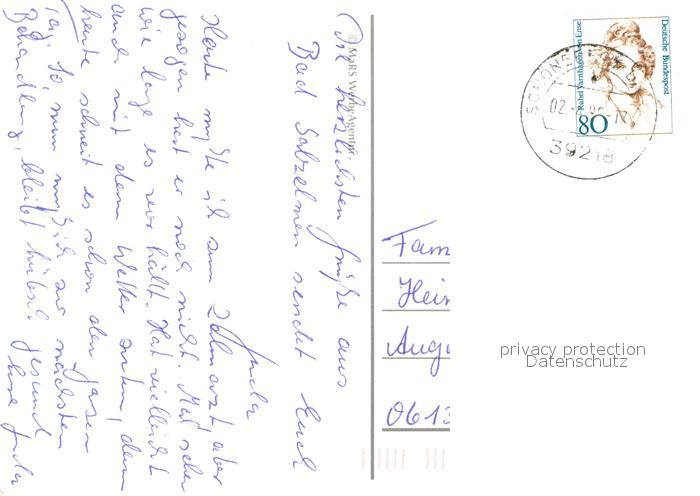 Die herzlichsten Grüße aus
Bad Salzelmen sendet Euch
Jutta
Heute mußte ich zum Zahnarzt, aber
gezogen hat er noch nicht. Mal sehen
wie lange es vorhält. Hat vielleicht
auch mit dem Wetter zu tun, denn
heute schneit es schon den ganzen
Tag. So, nun muß ich zur nächsten
Behandlung, bleibt hübsch gesund
Eure Jutta
© MaRS WerbeAgentur
Deutsche Bundespost
Rahel Varnhagen von Ense
80
39218
Fam
Hein
Augu
0613
privacy protection
Datenschutz